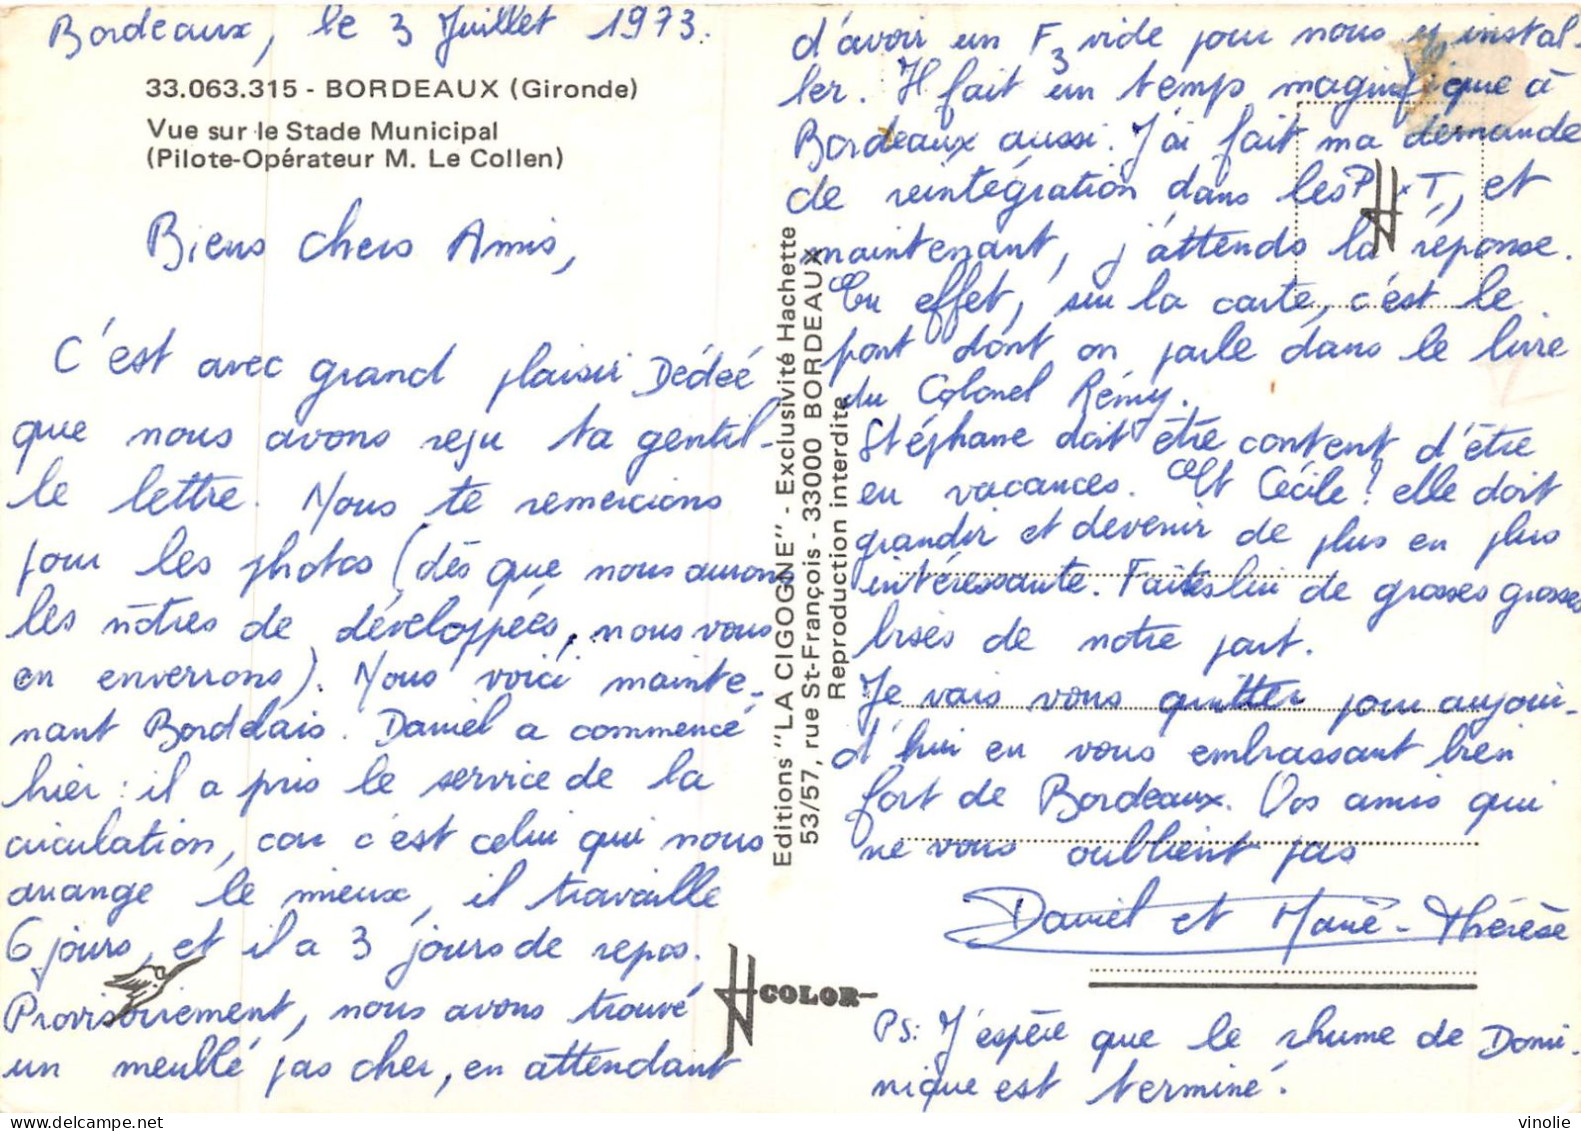 Bordeaux, le 3 Juillet 1973.
33.063.315 - BORDEAUX (Gironde)
Vue sur le Stade Municipal
(Pilote-Opérateur M. Le Collen)
Biens chers Amis,
C'est avec grand plaisir Dédéé
que nous avons reçu ta gentil-
le lettre. Nous te remercions
pour les photos (dès que nous aurons
les nôtres de développées, nous vous
en enverrons). Nous voici mainte-
nant Bordelais. Daniel a commencé
hier : il a pris le service de la
circulation, car c'est celui qui nous
arrange le mieux, il travaille
6 jours, et il a 3 jours de repos.
Provisoirement, nous avons trouvé
un meublé pas cher, en attendant
Editions "LA CIGOGNE" - Exclusivité Hachette
53/57, rue St-François - 33000 BORDEAUX
Reproduction interdite
COLOR
d'avoir un F3 vide pour nous y instal-
ler. Il fait un temps magnifique à
Bordeaux aussi. J'ai fait ma demande
de réintégration dans les P x T, et
maintenant, j'attends la réponse.
En effet, sur la carte, c'est le
pont dont on parle dans le livre
du Colonel Rémy.
Stéphane doit être content d'être
en vacances. Et Cécile ? elle doit
grandir et devenir de plus en plus
intéressante. Faites lui de grosses grosses
bises de notre part.
Je vais vous quitter pour aujour-
d'hui en vous embrassant bien
fort de Bordeaux. Vos amis qui
ne vous oublient pas
Daniel et Marie-Thérèse
PS: J'espère que le rhume de Domi-
nique est terminé.
vinolie